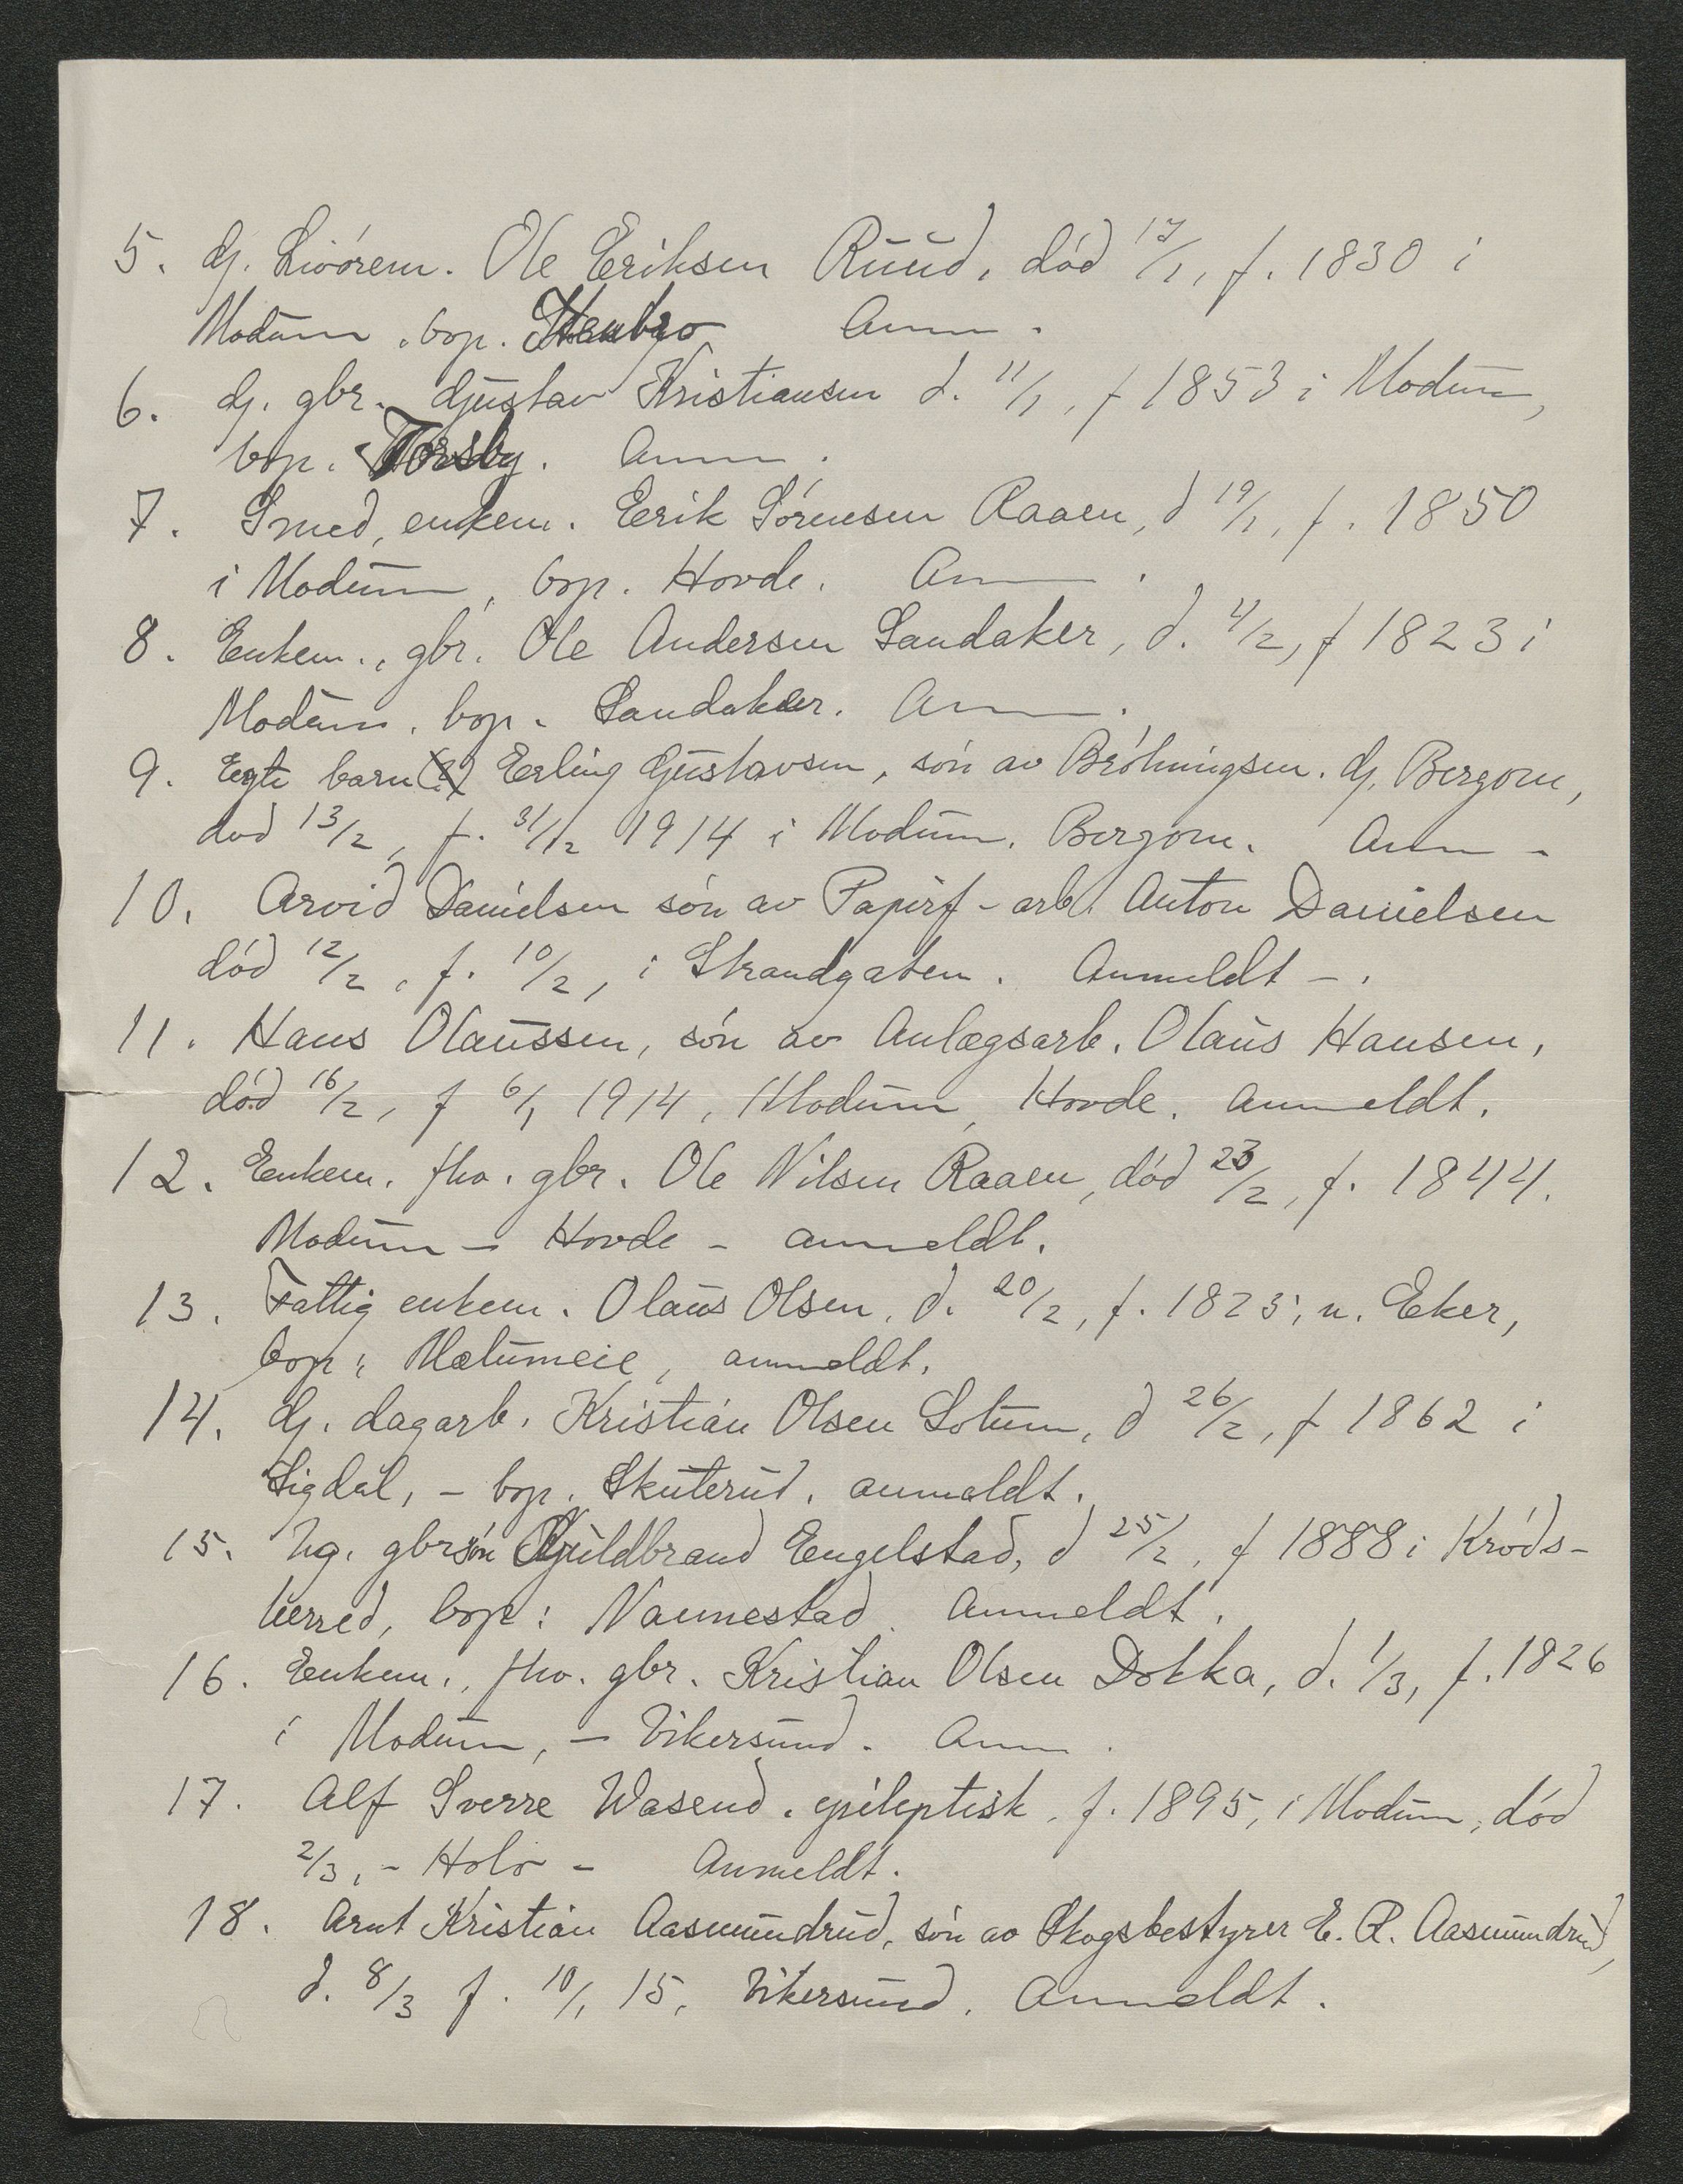 5. Gj. Livörem. Ole Eriksen Ruud, död 17/1, f. 1830 i
Modum, bop. Stenbro Anm.
6. Gj. gbr. Gustav Kristiansen d. 11/1, f 1853 i Modum,
bop. Torsby. Anm.
7. Smed, enkem. Erik Sörensen Raaen, d 19/1, f. 1850
i Modum, bop. Hovde. An.
8. Enkem., gbr. Ole Andersen Sandaker, d. 4/2, f 1823 i
Modum, bop. Sandaker. An.
9. Egte barn Erling Gustavsen, sön av Gj. Bergom,
død 13/2, f. 31/12 1914 i Modum. Bergom. Anm -
10. Arvid Danielsen sön av Papirf-arb. Anton Danielsen
död 12/2, f. 10/2, i Strandgaten. Anmeldt -.
11. Hans Olaussen, sön av Anlægsarb. Olaus Hansen,
död 16/2, f 6/1 1914, Modum, Hovde. anmeldt.
12. Enkem. fhv. gbr. Ole Nilsen Raaen, död 23/2, f. 1844.
Modum - Hovde - anmeldt.
13. Fattig enkem. Olaus Olsen, d. 20/2, f. 1825, n. Eker,
bop: anmeldt.
14. Gj. dagarb. Kristian Olsen Sotum, d 26/2, f 1862 i
Sigdal, - bop. Skuterud, anmeldt.
15. Ug. gbrsön Guldbrand Engelstad, d 25/2, f 1888 i Kröds-
herred, bop: Nannestad. Anmeldt.
16. Enkem., fhv. gbr. Kristian Olsen Dokka, d. 1/3, f. 1826
i Modum, - Vikersund. Anm.
17. Alf Sverre Wasend, epileptisk, f. 1895, i Modum, död
2/3, - Holo - Anmeldt.
18. Arnt Kristian Aasmundrud, sön av Skogsbestyrer E. R. Aasmundrud,
d. 8/3 f. 10/1 15, Vikersund. Anmeldt.